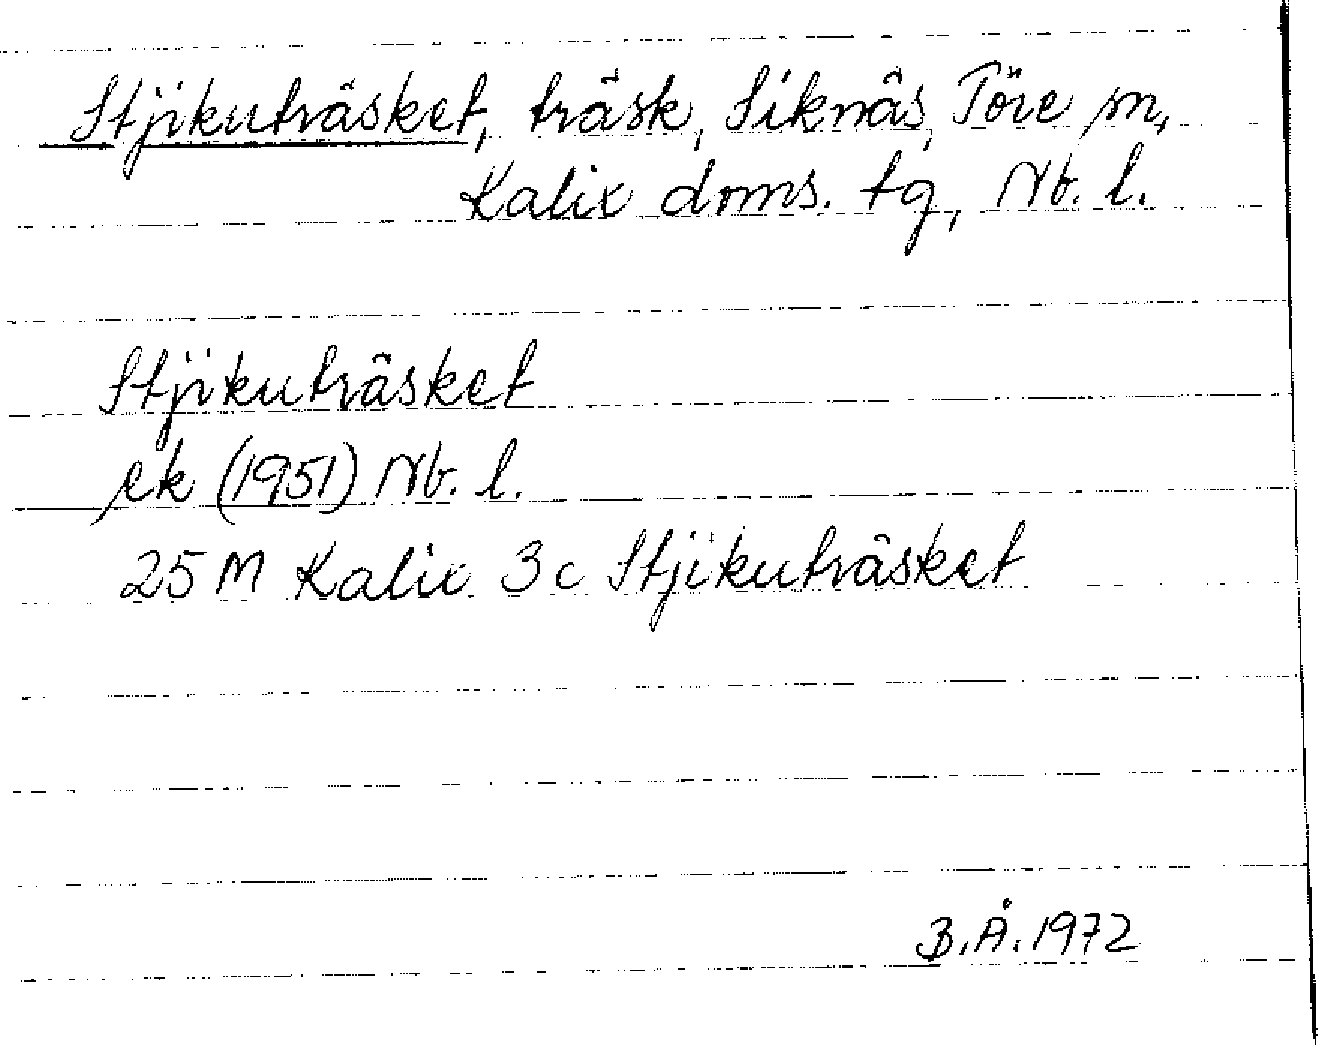 Stjikuträsket, träsk, Siknäs, Töre sn,
Kalix doms. tg, Nb. l.
Stjikuträsket
ek (1951) Nb. l.
25 M Kalix 3c Stjikuträsket
B.Å. 1972